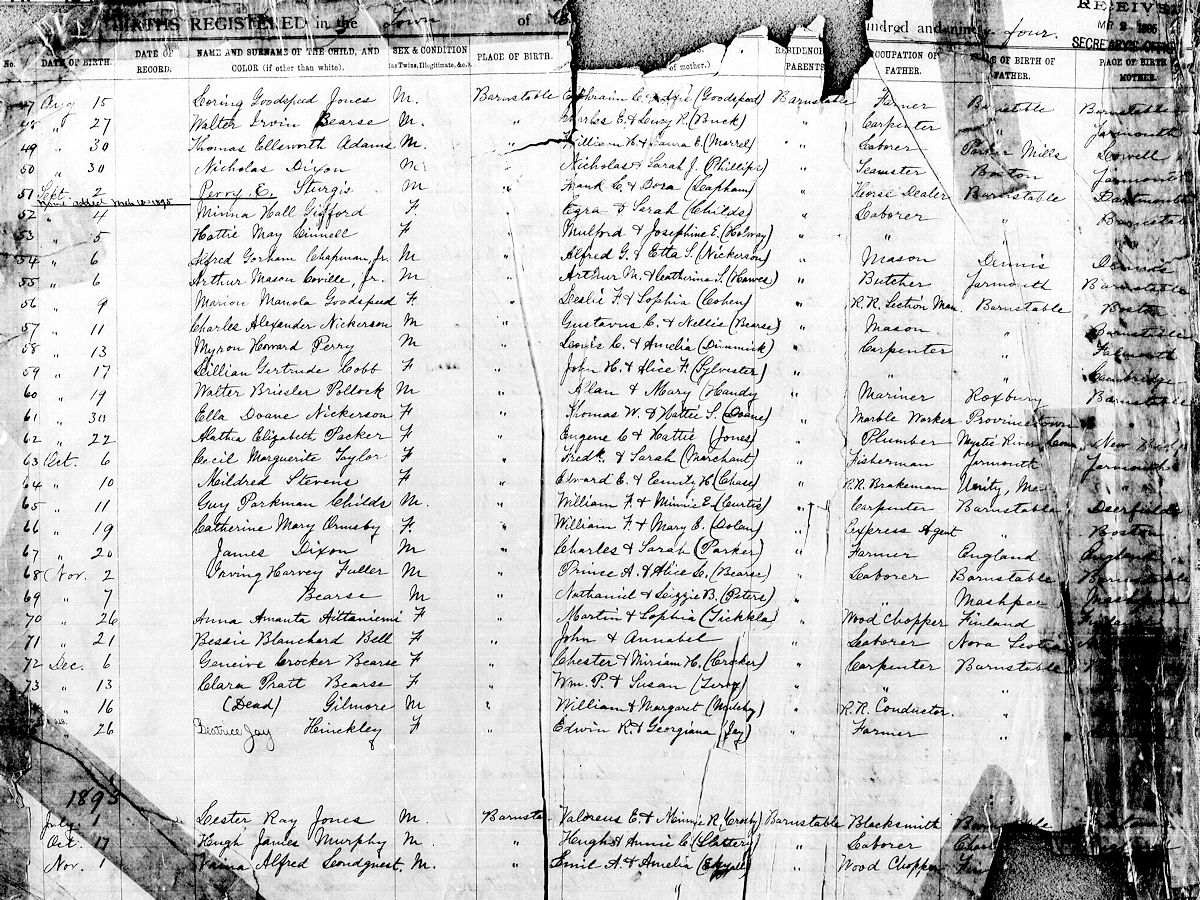 BIRTHS REGISTERED in the Town of hundred and ninety four.
RECEIVE
SECRETARY'S OFFICE
No. DATE OF BIRTH. DATE OF RECORD. NAME AND SURNAME OF THE CHILD, AND COLOR (if other than white). SEX & CONDITION (as Twins, Illegitimate, &c.). PLACE OF BIRTH. of mother.) RESIDENCE PARENTS OCCUPATION OF FATHER. OF BIRTH OF FATHER. PLACE OF BIRTH MOTHER.
47 Aug 15 Loring Goodspeed Jones M. Barnstable (Goodspeed) Barnstable Farmer Barnstable Barnstable
48 " 27 Walter Irvin Bearse M. " Charles E. & Lucy P. (Buck) " Carpenter " Yarmouth
49 " 30 Thomas Ellsworth Adams M. " William H. & (Morrel) " Laborer Parker Mills Lowell
50 " 30 Nicholas Dixon M. " Nicholas & Sarah J. (Phillips) " Teamster Boston Yarmouth
51 Sept. 2 Percy E. Sturgis M " Frank C. & Dora (Lapham) " Horse Dealer Barnstable Dartmouth
added Mch 16 1895
52 " 4 Minna Hall Gifford F " Ezra & Sarah (Childs) " Laborer " Barnstable
53 " 5 Hattie May Linnell F " Mulford & Josephine E. (Holway) " " "
54 " 6 Alfred Gorham Chapman, Jr. M " Alfred G. & Etta S. (Nickerson) " Mason Dennis Dennis
55 " 6 Arthur Mason Coville, Jr. M " Arthur M. & Catherine S. (Hawes) " Butcher Yarmouth Barnstable
56 " 9 Marion Manola Goodspeed F " Leslie F. & Sophia (Cohen) " R.R. Section Man Barnstable Boston
57 " 11 Charles Alexander Nickerson M " Gustavus C. & Nellie (Bearse) " Mason " Barnstable
58 " 13 Myron Howard Perry M " Louis C. & Amelia (Dimmick) " Carpenter " Falmouth
59 " 17 Lillian Gertrude Cobb F " John H. & Alice F. (Sylvester) " " " Cambridge
60 " 19 Walter Briesler Pollock M " Allan & Mary (Handy " Mariner Roxbury Barnstable
61 " 30 Ella Doane Nickerson F " Thomas W. & Hattie S. (Doane) " Marble Worker Provincetown "
62 " 22 Mathia Elizabeth Packer F " Eugene C & Hattie (Jones) " Plumber Mystic River, Conn. New Bed
63 Oct. 6 Cecil Marguerite Taylor F " Fredk. & Sarah (Marchant) " Fisherman Yarmouth Yarmouth
64 " 10 Mildred Stevens F " Edward E. & Emily H. (Chase) " R.R. Brakeman Unity, Me. "
65 " 11 Guy Parkman Childs M. " William F. & Minnie E. (Curtis) " Carpenter Barnstable Deerfield
66 " 19 Catherine Mary Ormsby F " William F. & Mary E. (Dolan) " Express Agent " Boston
67 " 20 James Dixon M " Charles & Sarah (Parker) " Farmer England England
68 Nov. 2 Irving Harvey Fuller M " Prince A. & Alice C. (Bearse) " Laborer Barnstable Barnstable
69 " 7 Bearse M " Nathaniel & Lizzie B. (Peters) " " Mashpee Mashpee
70 " 26 Anna Amanta Aittaniemi F " Martin & Sophia " Wood Chopper Finland Finland
71 " 21 Bessie Blanchard Bell F " John & Annabel " Laborer Nova Scotia
72 Dec. 6 Geneive Crocker Bearse F " Chester & Miriam H. (Crocker) " Carpenter Barnstable
73 " 13 Clara Pratt Bearse F " Wm. P. & Susan " " "
" 16 (Dead) Gilmore M " William & Margaret " R.R. Conductor "
" 26 Beatrice Jay Hinckley F " Edwin R. & Georgiana (Jay) " Farmer "
1893
July 1 Lester Ray Jones M. Barnsta Valorus E. & Minnie R. (Crosby) Barnstable Blacksmith
Oct. 17 Hugh James Murphy M. " Hugh & Annie C. (Slattery) " Laborer
Nov. 1 Alfred M. " Emil A. & Amelia " Wood Chopper